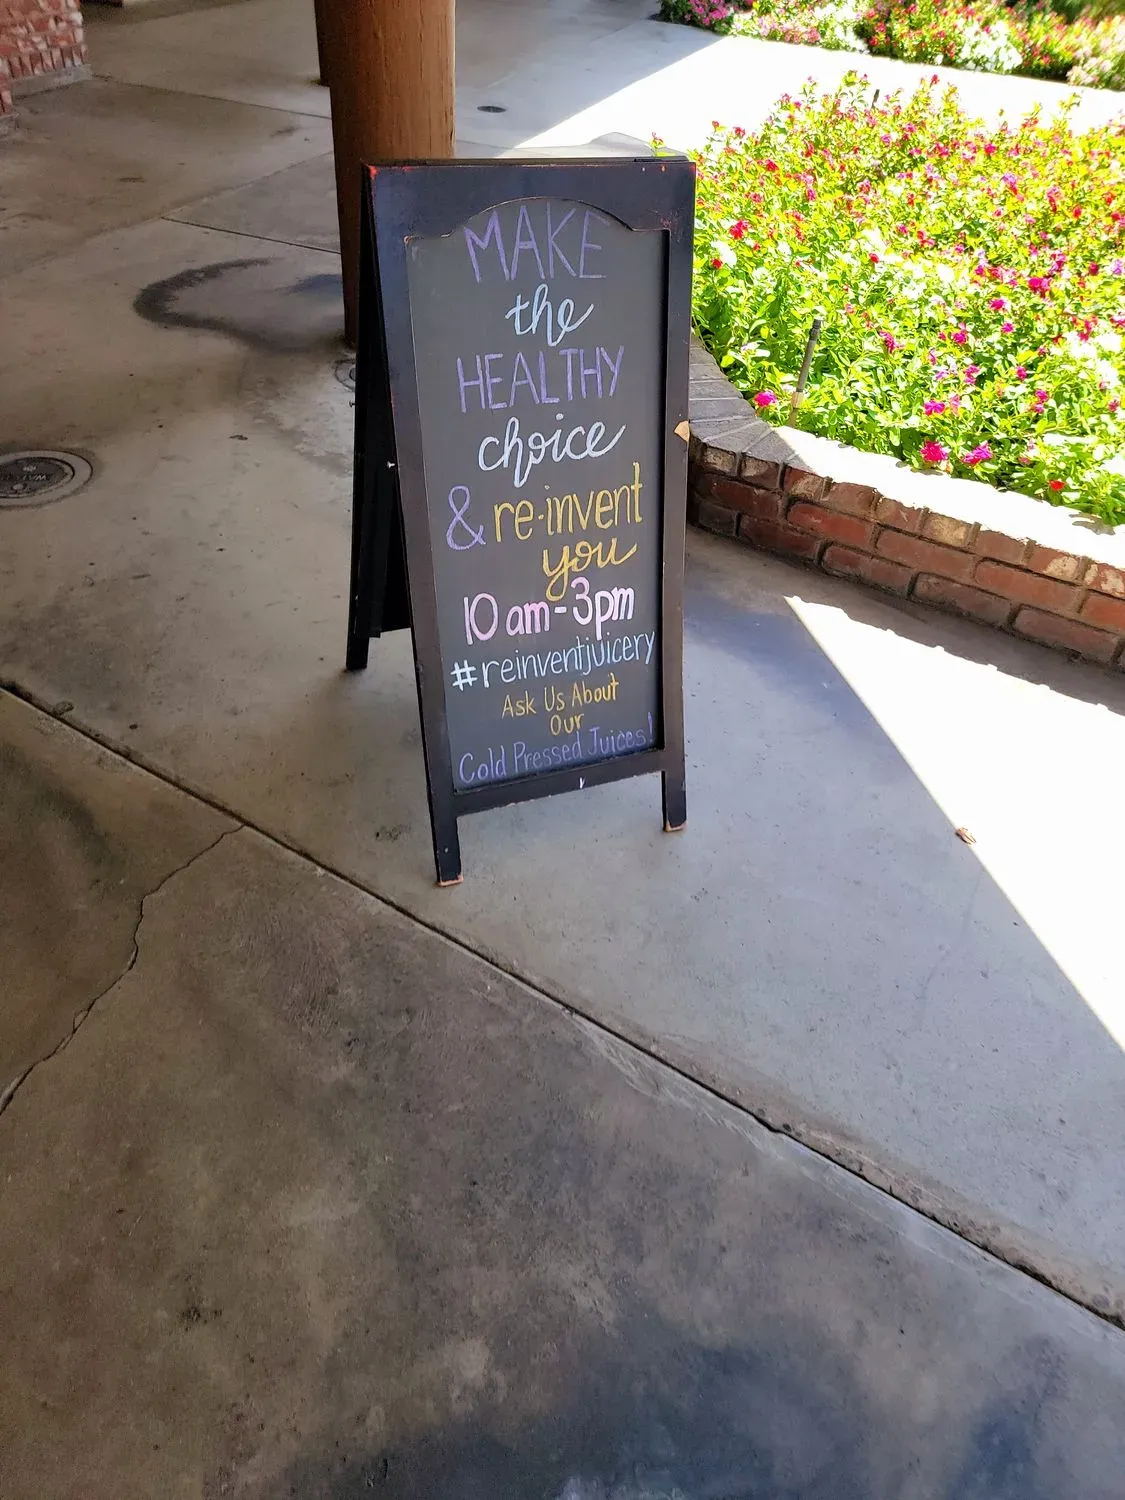 MAKE
the
HEALTHY
choice
& re-invent
you
10 am-3pm
#reinventjuicery
Ask Us About
Our
Cold Pressed Juices!